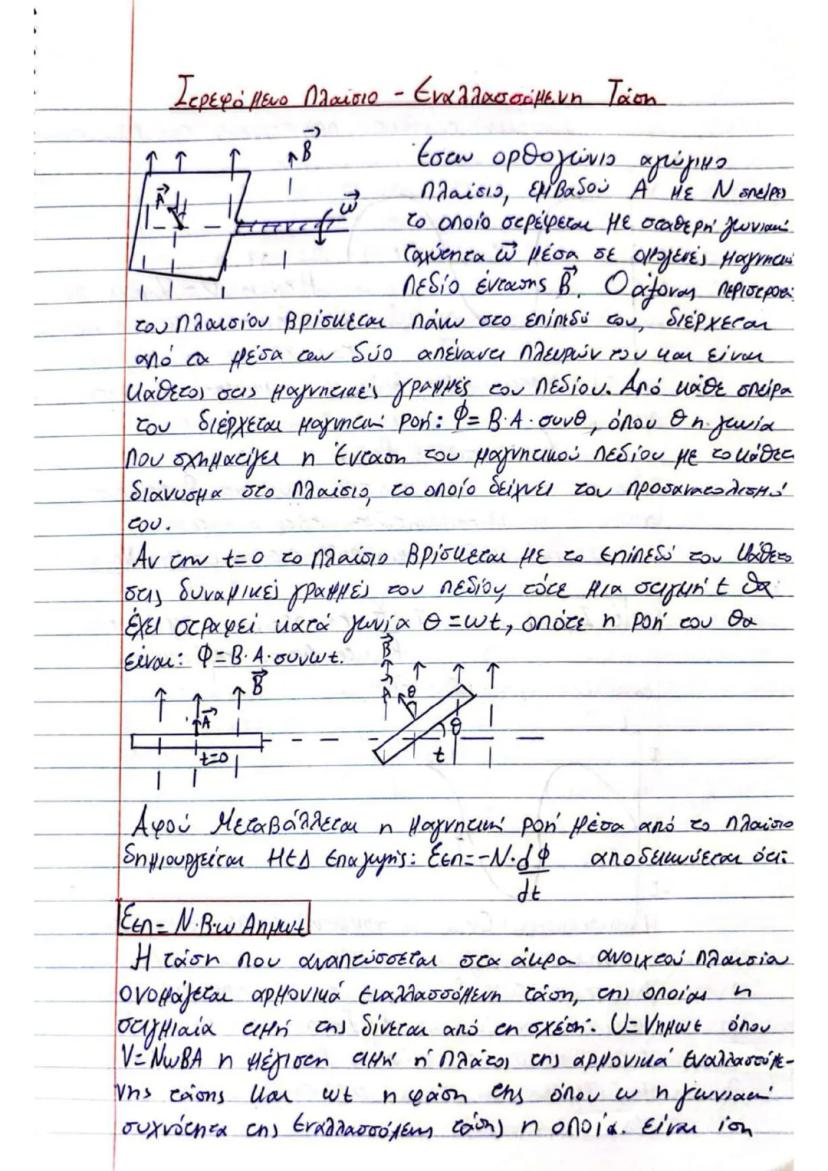 Στρεφόμενο Πλαίσιο - Εναλλασσόμενη Τάση
B
Έστω ορθογώνιο αγώγιμο
A
πλαίσιο, εμβαδού A με N σπείρες
ω
το οποίο στρέφεται με σταθερή γωνιακή
ταχύτητα ω μέσα σε ομογενές μαγνητικό
πεδίο έντασης B. Ο άξονας περιστροφή
του πλαισίου βρίσκεται πάνω στο επίπεδό του, διέρχεται
από τα μέσα των δύο απέναντι πλευρών του και είναι
κάθετος στις μαγνητικές γραμμές του πεδίου. Από κάθε σπείρα
του διέρχεται μαγνητική ροή: Φ=B·A·συνθ, όπου θ η γωνία
που σχηματίζει η ένταση του μαγνητικού πεδίου με το κάθετο
διάνυσμα στο πλαίσιο, το οποίο δείχνει τον προσανατολισμό
του.
Αν την t=0 το πλαίσιο βρίσκεται με το επίπεδό του κάθετο
στις δυναμικές γραμμές του πεδίου, τότε μια στιγμή t θα
έχει στραφεί κατά γωνία θ=ωt, οπότε η ροή του θα
είναι: Φ=B·A·συνωt.
B
B
A
θ
θ
t=0
t
Αφού μεταβάλλεται η μαγνητική ροή μέσα από το πλαίσιο
δημιουργείται ΗΕΔ επαγωγής: Eεπ=-N·dΦ/dt αποδεικνύεται ότι:
Eεπ=N·B·ω Aημωt
Η τάση που αναπτύσσεται στα άκρα ανοιχτού πλαισίου
ονομάζεται αρμονικά εναλλασσόμενη τάση, της οποίας η
στιγμιαία τιμή της δίνεται από τη σχέση. U=Vημωt όπου
V=NωBA η μέγιστη τιμή ή πλάτος της αρμονικά εναλλασσόμε-
νης τάσης και ωt η φάση της όπου ω η γωνιακή
συχνότητα της εναλλασσόμενης τάσης η οποία. είναι ίση